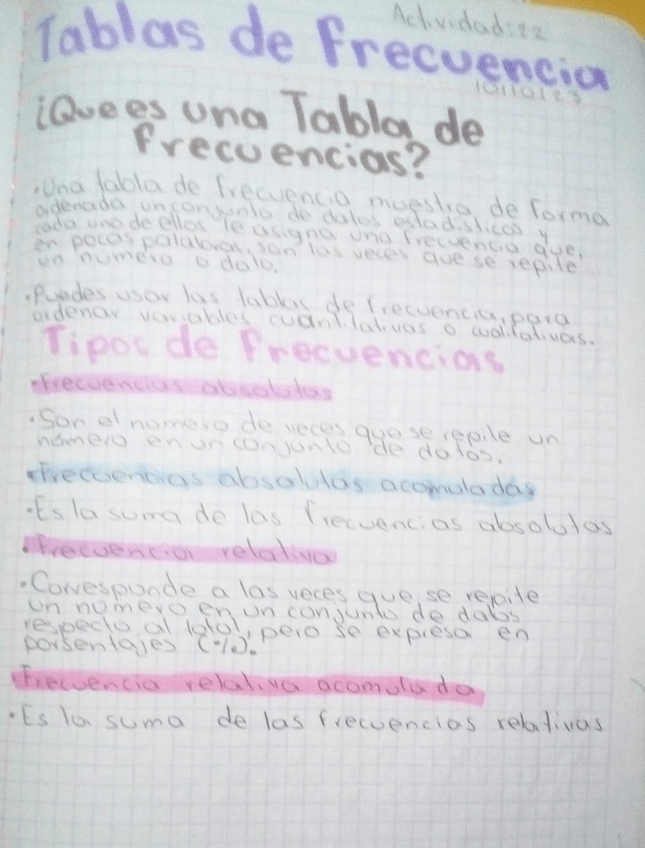 Actividad:22
Tablas de frecuencia
10/10/23
¡Que es una Tabla de
frecuencias?
·Una tabla de frecuencia muestra de forma
ordenada un conjunto de datos estadisticos y
cada uno de ellos le asigna una frecuencia que,
en pocas palabras, son las veces que se repite
un numero o dato.
·Puedes usar las tablas de frecuencia, para
ordenar variables cuantitativas o cualitativas.
Tipos de frecuencias
·frecuencias absolutas
·Son el numero de veces que se repite un
número en un conjunto de datos.
·frecuencias absolutas acomuladas
·Es la suma de las frecuencias absolutas
·frecuencia relativa
·Corresponde a las veces que se repite
un número en un conjunto de datos
respecto al total, pero se expresa en
porsentajes (%).
frecuencia relativa acomulada
·Es la suma de las frecuencias relativas